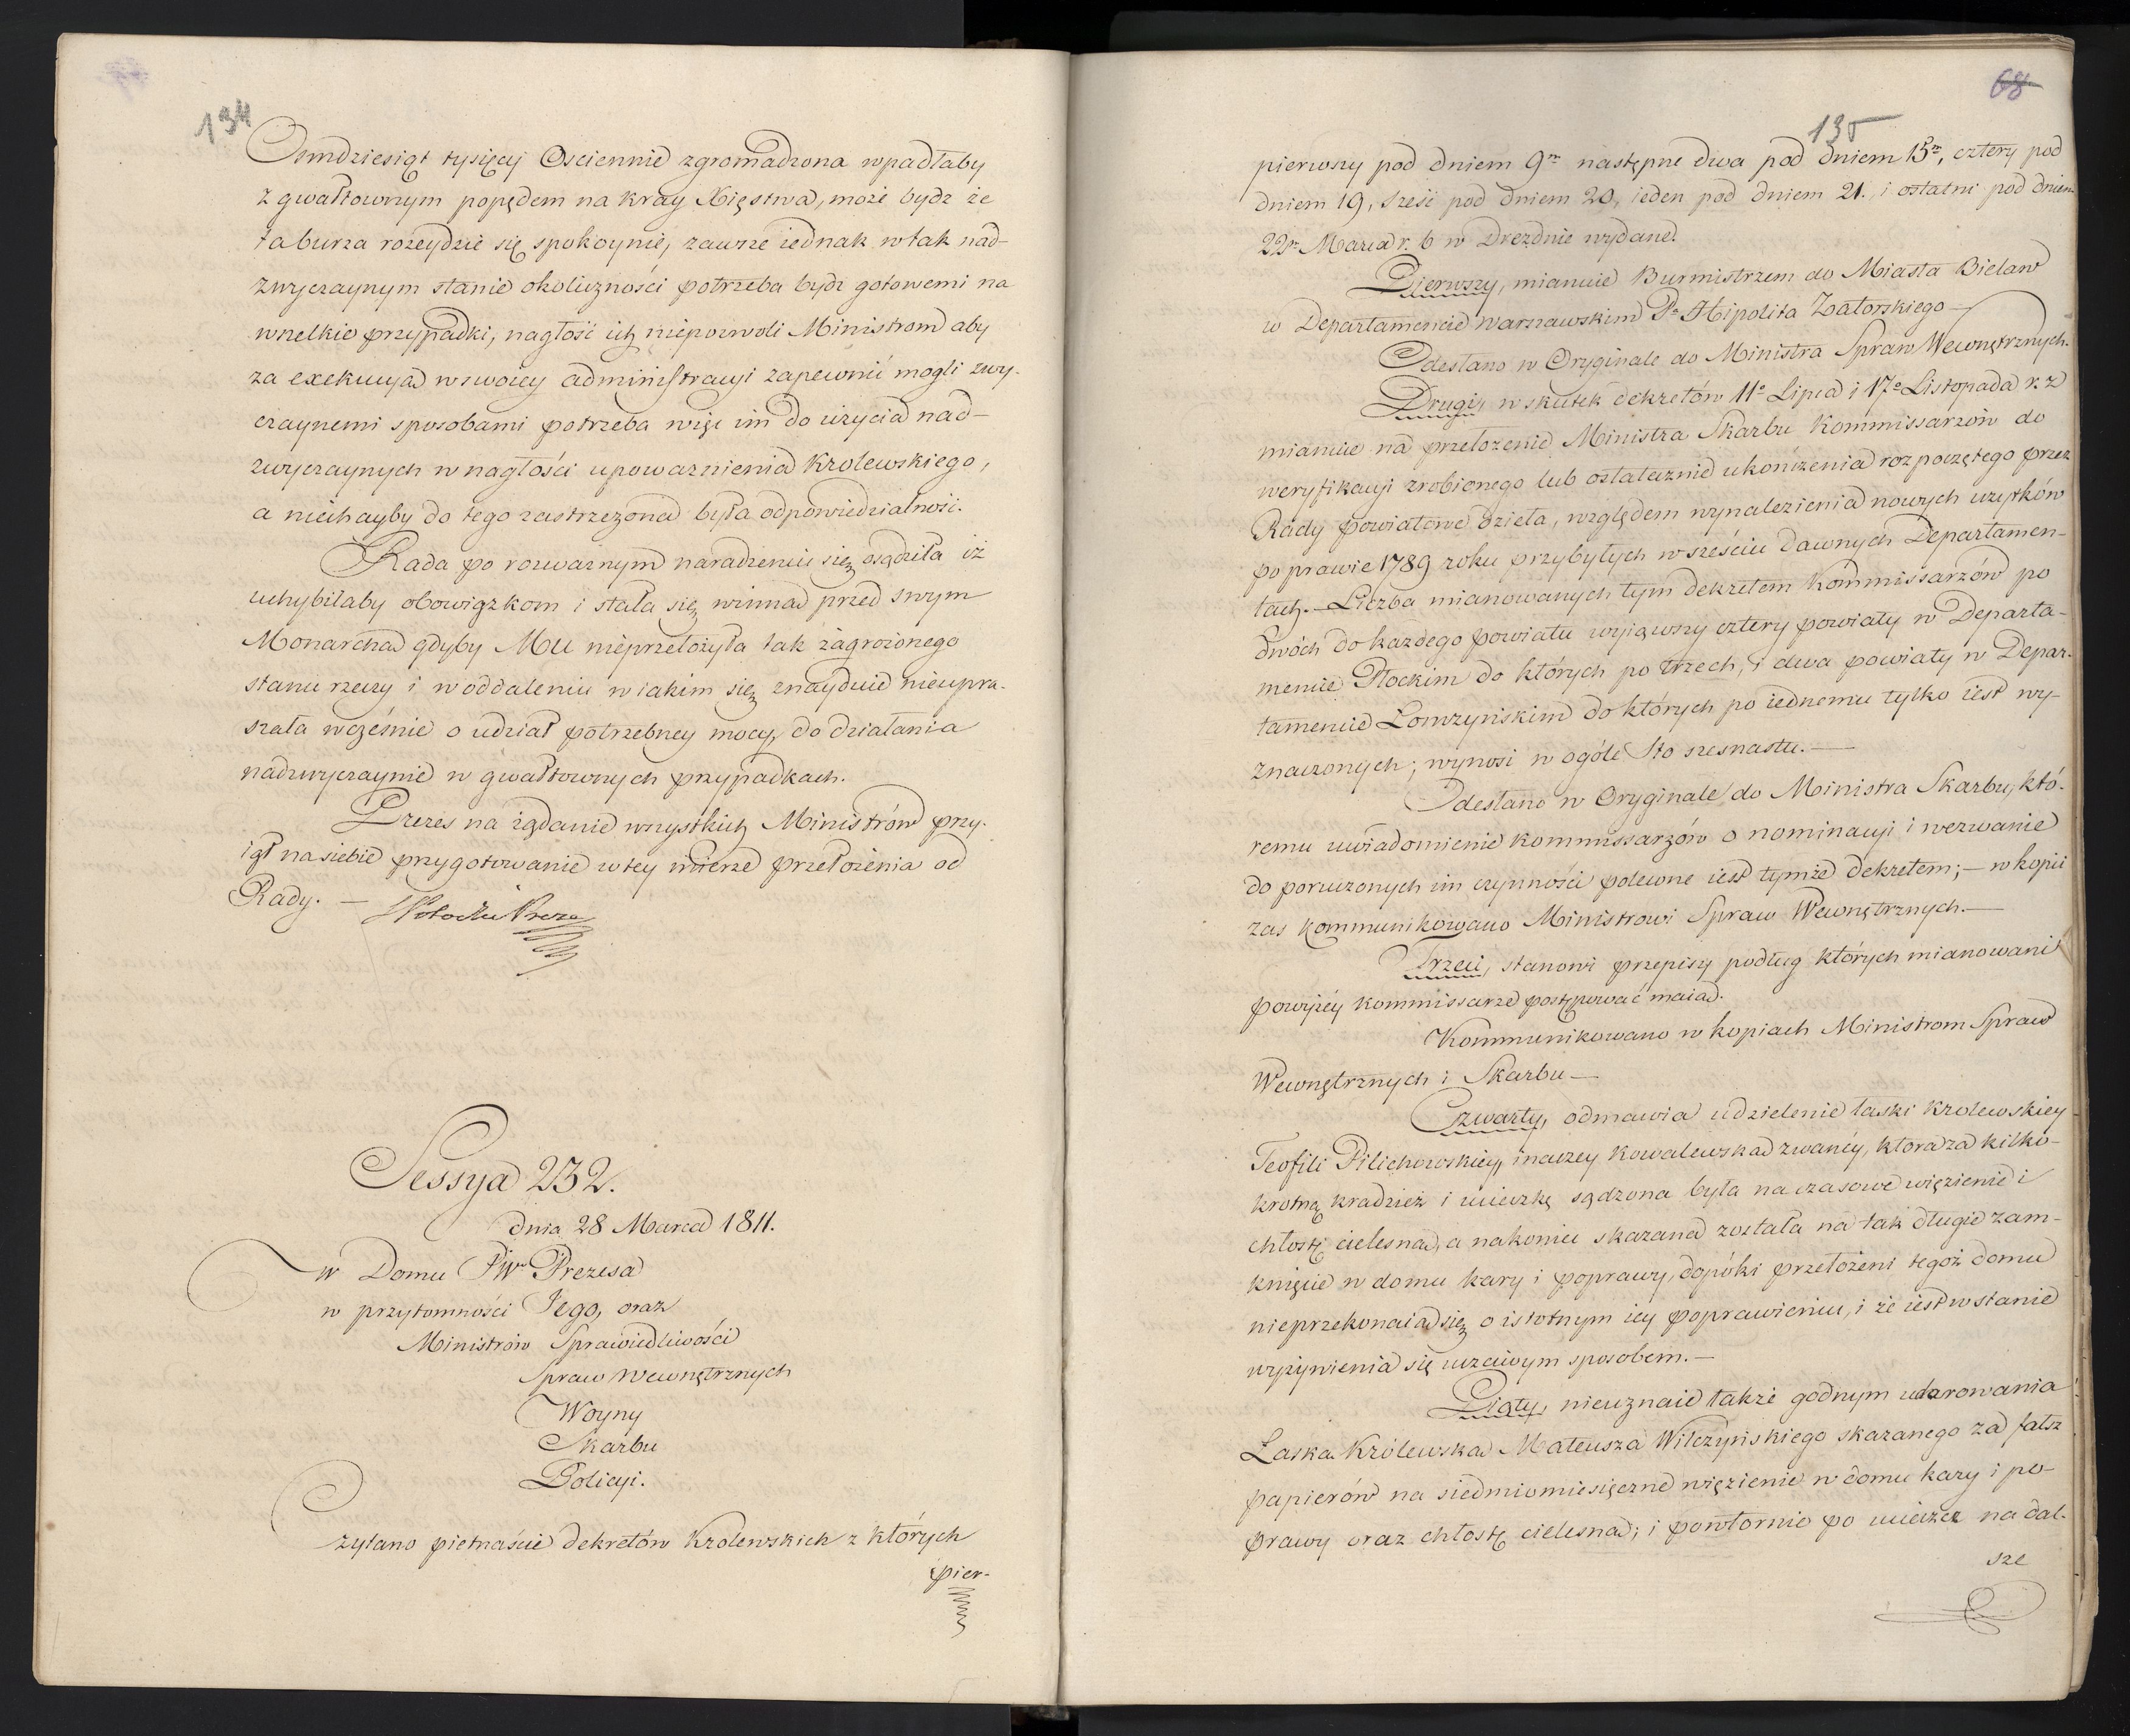 134
Osmdziesiąt tysięcy Osciennie zgromadzona wpadłaby
z gwałtownym popędem na kray Xięstwa, może bydz że
ta burza rozeydzie się spokoynie, zawsze iednak w tak nad-
zwyczaynym stanie okoliczności potrzeba bydz gotowemi na
wszelkie przypadki, nagłość ich niepozwoli Ministrom aby
za exekucyą w swoiey administracyi zapewnić mogli zwy-
czaynemi sposobami potrzeba więc im do użycia nad-
zwyczaynych w nagłości upoważnienia Krolewskiego,
a niechayby do tego zastrzeżona była odpowiedzialność.
Rada po rozważnym naradzeniu się osądziła iż
uchybiłaby obowiązkom i stała się winną przed swym
Monarchą gdyby Mu nieprzełożyła tak zagrożonego
stanu rzeczy i w oddaleniu w iakim się znayduie nieupra-
szała wcześnie o udział potrzebney mocy, do działania
nadzwyczaynie w gwałtownych przypadkach.
Prezes na żądanie wszystkich Ministrów przy-
iął na siebie przygotowanie w tey mierze przełożenia od
Rady. —
Sessya 232.
dnia 28 Marca 1811.
w Domu JW. Prezesa
w przytomności Jego, oraz
Ministrów Sprawiedliwości
Spraw Wewnętrznych
Woyny
Skarbu
Policyi.
Czytano pietnaście dekretów Krolewskich z których
pier-
68
135
pierwszy pod dniem 9m następne dwa pod dniem 15m, cztery pod
dniem 19, sześć pod dniem 20, ieden pod dniem 21. i ostatni pod dniem
22m Marca r. b w Dreznie wydane.
Pierwszy, mianuie Burmistrzem do Miasta Bielaw
w Departamencie Warszawskim P. Hipolita Zatorskiego —
Odesłano w Oryginale do Ministra Spraw Wewnętrznych.
Drugi, w skutek dekretów 11o Lipca i 17o Listopada r. z
mianuie na przełożenie Ministra Skarbu Kommissarzów do
weryfikacyi zrobionego lub ostatecznie ukończenia rozpoczętego przez
Rady powiatowe dzieła, względem wynalezienia nowych uzytków
po prawie 1789 roku przybyłych w sześciu dawnych Departamen-
tach. — Liczba mianowanych tym dekretem Kommissarzów po
dwóch do każdego powiatu wyiąwszy cztery powiaty w Departa-
mencie Płockim do których po trzech, i dwa powiaty w Depar-
tamencie Łomżyńskim do których po iednemu tylko iest wy-
znaczonych; wynosi w ogóle Sto szesnastu. —
Odesłano w Oryginale do Ministra Skarbu, któ-
remu uwiadomienie kommissarzów o nominacyi i wezwanie
do poruczonych im czynności polecone iest tymże dekretem; — w kopii
zas kommunikowano Ministrowi Spraw Wewnętrznych. —
Trzeci, stanowi przepisy podług których mianowani
powyżey kommissarze postępować maią.
Kommunikowano w kopiach Ministrom Spraw
Wewnętrznych i Skarbu —
Czwarty, odmawia udzielenie łaski Krolewskiey
Teofili Pilichowskiey, inaczey Kowalewską zwaney, która za kilko-
krotną kradzież i ucieczkę sądzona była na czasowe więzienie i
chłostę cielesną, a nakoniec skazaną została na tak długie zam-
knięcie w domu kary i poprawy, dopóki przełożeni tegoż domu
nieprzekonaią się o istotnym iey poprawieniu, i że iest w stanie
wyżywienia się uczciwym sposobem. —
Piąty, nieuznaie także godnym udarowania
Łaską Królewską Mateusza Wilczyńskiego skazanego za fałsz
papierów na siedmiomiesięczne więzienie w domu kary i po-
prawy oraz chłostę cielesną; i powtornie po ucieczce na dal-
sze